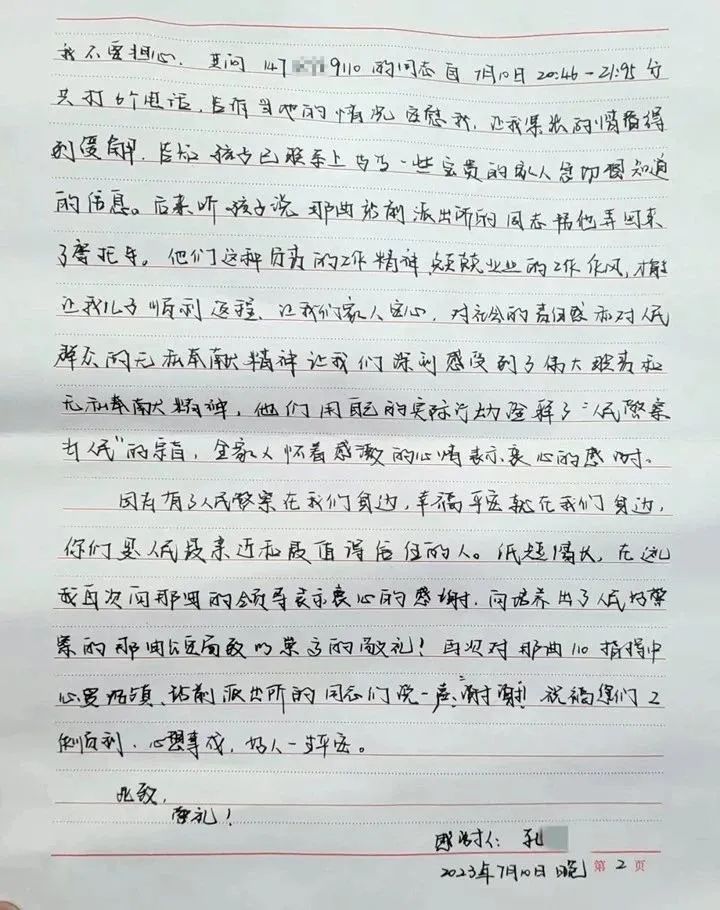 我不要担心. 其间 147 9110 的同志自 7月10日 20:46-21:95 分
共打6个电话, 告诉当地的情况安慰我, 让我紧张的情绪得
到缓解, 告知孩子已联系上与一些宝贵的家人急切想知道
的信息。后来听孩子说那曲站前派出所的同志帮他弄回来
了摩托车。他们这种负责的工作精神兢兢业业的工作作风, 才能
让我儿子顺利返程, 让我们家人安心, 对社会的责任感和对人民
群众的无私奉献精神让我们深刻感受到了伟大服务和
无私奉献精神, 他们用自己的实际行动诠释了"人民警察
为人民"的宗旨, 全家人怀着感激的心情表示衷心的感谢.
因为有了人民警察在我们身边, 幸福平安就在我们身边,
你们是人民最亲近和最值得信任的人。纸短情长, 在这儿
我再次向那曲的领导表示衷心的感谢, 向培养出了人民好警
察的那曲公安局致以崇高的敬礼! 再次对那曲110指挥中
心、站前派出所的同志们说一声:谢谢! 祝福您们工
作顺利, 心想事成, 好人一生平安。
此致,
敬礼!
感谢人: 孔
2023年7月10日 晚
第 2 页